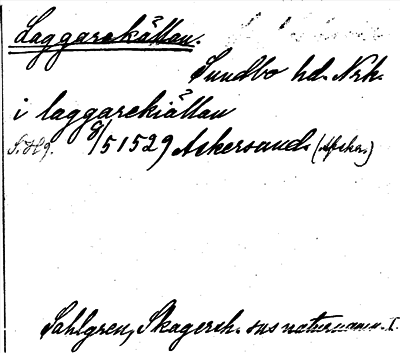 Laggarekällan.
Sundbo hd. Nrk.
i laggarekiällan
8/5 1529 Askersund (Afskr.)
Sahlgren, Skagersh. sns naturnamn. I.